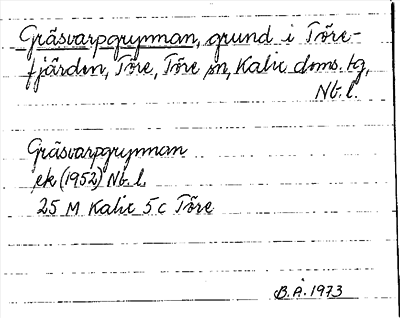 Gräsvarpgrynnan, grund i Töre-
fjärden, Töre, Töre sn, Kalix doms. tg,
Nb. l.
Gräsvarpgrynnan
ek (1952) Nb. l.
25 M Kalix 5c Töre
B.Å. 1973